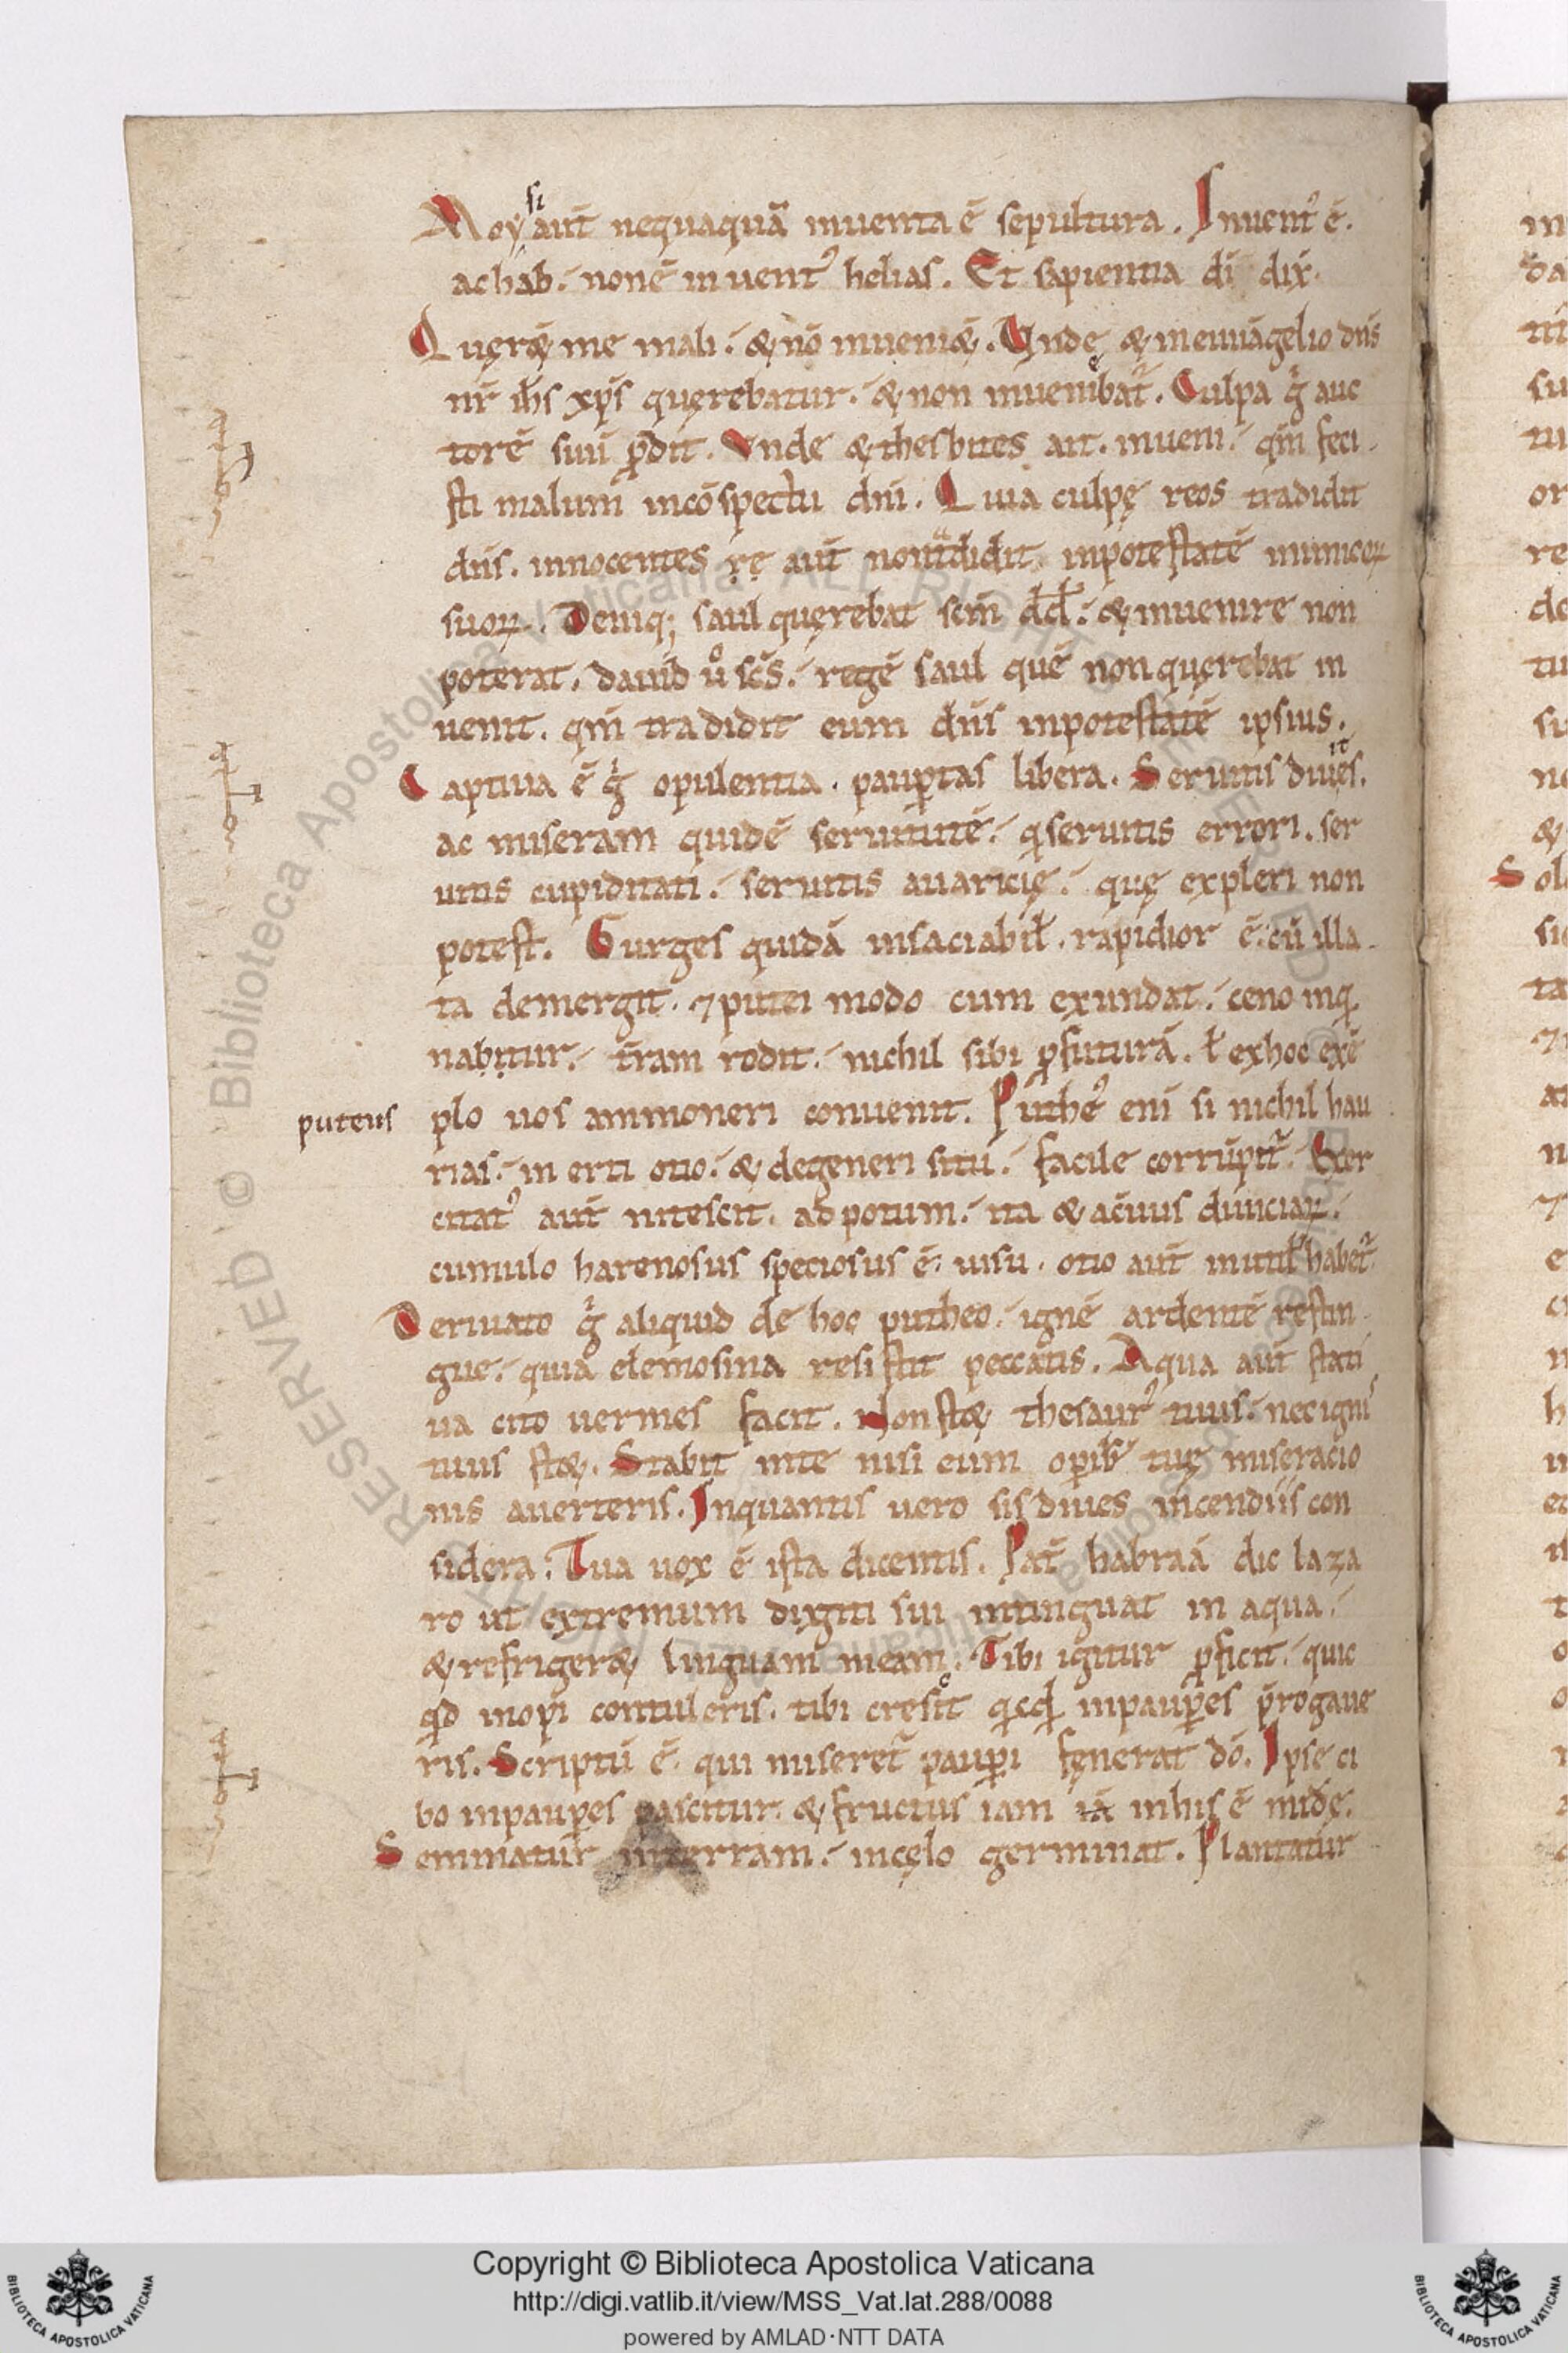 Moysi aut̄ nequaquā inuenta ē sepultura. Inuent᾽ ē.
achab. non ē inuent᾽ helias. Et sapientia dī dix̄.
Quęr& me mali. & nō inueni&. Unde & in euuāgelio dn̄s
nr̄ ih̄s xp̄s quęrebatur. & non inueniebat᾽. Culpa g̊ auc
torē suū ꝓdit. Unde & thesbites ait. inueni. qm̄ feci
sti malum in cōspectu dnī. Quia culpę reos tradidit
dn̄s. innocentes ręaut̄ non tradidit in potestatē inimicoꝝ
suoꝝ. Deniq; saul quęrebat scm̄ dd̄. & inuenire non
poterat. dauid ů sc̄s. regē saul quē non querebat in
uenit. qm̄ tradidit eum dn̄s in potestatē ipsius.
Captiua ē g̊ opulentia. paup̄tas libera. Seruitis diuites.
ac miseram quidē seruitutē. q̇ seruitis errori. ser
uitis cupiditati. seruitis auaricię. quę expleri non
potest. Gurges quidā insaciabil̄. rapidior ē. cū illa
ta demergit. ⁊ putei modo cum exundat. ceno inq
nabitur. t̄ram rodit. nichil sibi ꝓfuturā. ł ex hoc exē
puteus
plo uos ammoneri conuenit. Puthe᾽ enī si nichil hau
rias. inerti otio. & degeneri situ. facile corrūpit᾽. Exer
citat᾽ aut̄ nitescit. ad potum. ita & ac̄uus diuiciaꝝ.
cumulo harenosus speciosus ē. uisu. otio aut̄ inutil᾽ habet᾽.
Deriuato g̊ aliquid de hoc putheo. ignē ardentē restin
gue. quia elemosina resistit peccatis. Aqua aut̄ stati
ua cito uermes facit. Non st& thesaur᾽ tuus. nec ignis
tuus st&. Stabit in te nisi eum opib᾽ tuę miseracio
nis auerteris. In quantis uero sis diues incendiis con
sidera. Tua uox ē ista dicentis. Pat̄ habraā dic laza
ro ut extremum digiti sui intinguat in aqua.
& refriger& linguam meam. Tibi igitur ꝓficit. quic
qd inopi contuleris. tibi crescit q̇cqd in paup̄es p̄rogaue
ris. Scriptū ē. qui miseret᾽ paup̄i fęnerat dō. Ipse ci
bo in paup̄es pascitur. & fructus iam iā in his ē mid̄ę.
Seminatur in terram. in cęlo germinat. Plantatur
Copyright © Biblioteca Apostolica Vaticana
http://digi.vatlib.it/view/MSS_Vat.lat.288/0088
powered by AMLAD·NTT DATA